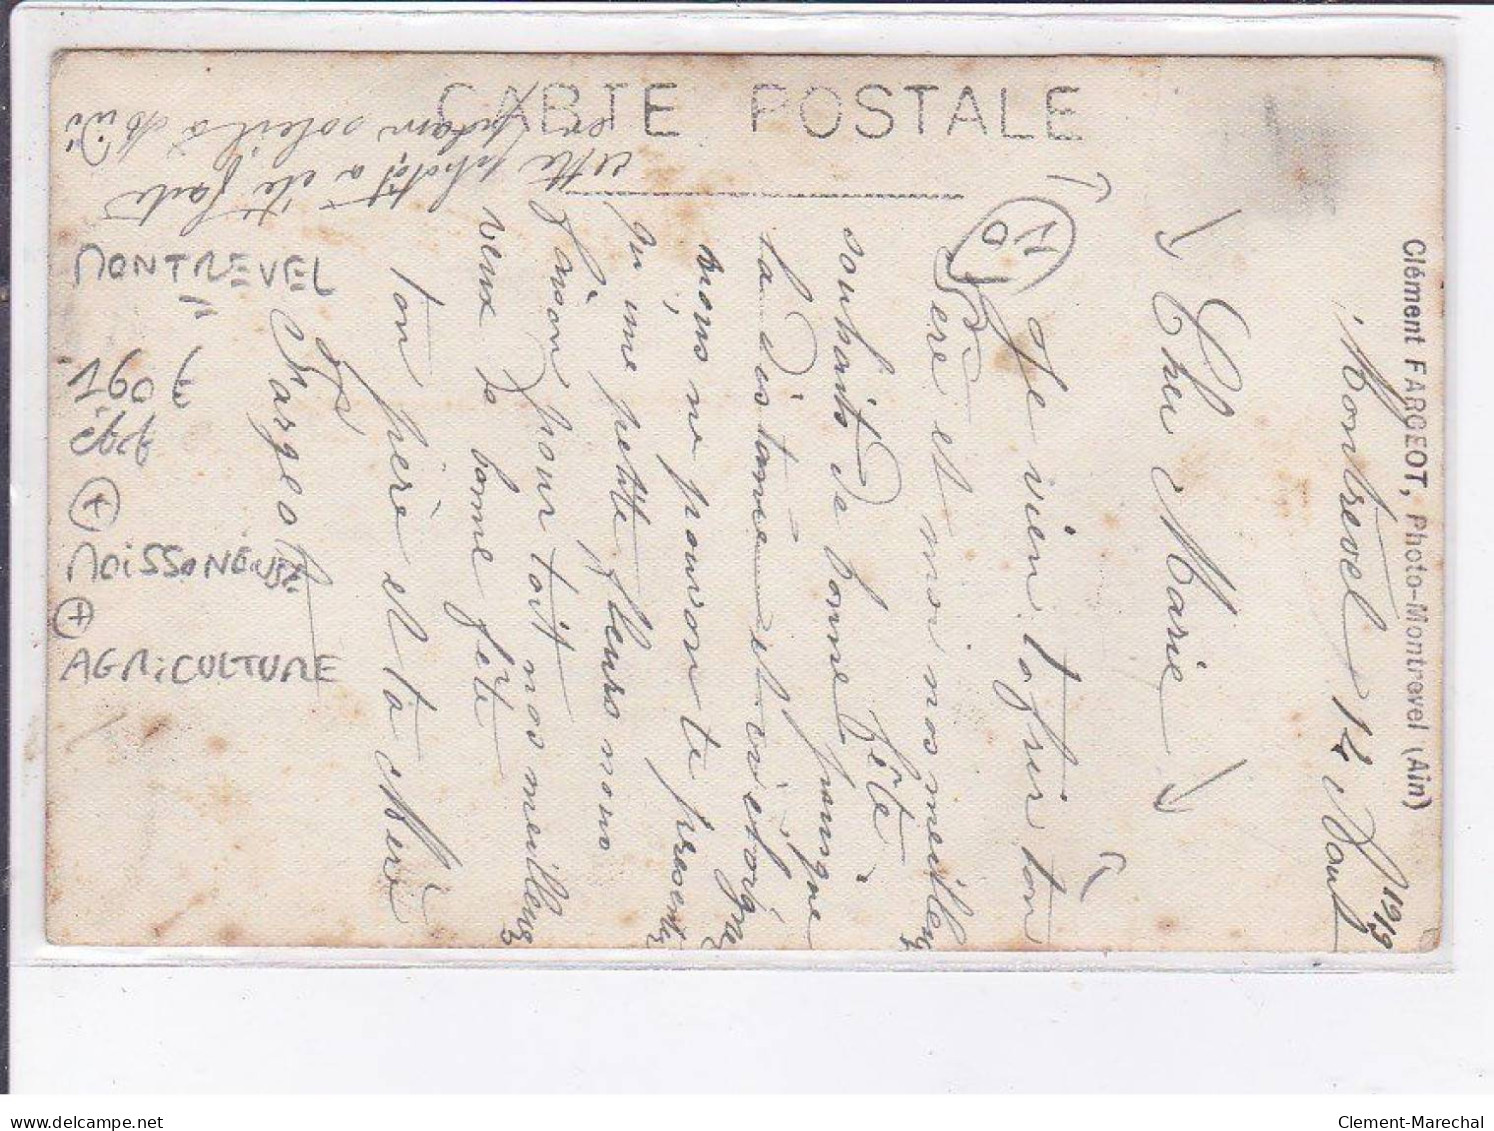 CARTE POSTALE
Clément FARGEOT, Photo-Montrevel (Ain)
Montrevel 14 Aout
1919
Cher Marie
Je vien tofrir ton
Père et moi nos meilleu
souhaits de bonne fête
la distance et puisque
nous ne pouvon te presente
qu une petite fleurs nous
finison pour toit nos meilleux
veux de bonne fête
ton père et ta Mère
Fargeot
cette photo a été faite
en plein soleil à Midi
10
MONTREVEL
160 €
ét.f
+
MOISSONEUSE
+
AGRICULTURE
www.delcampe.net
Clement-Marechal